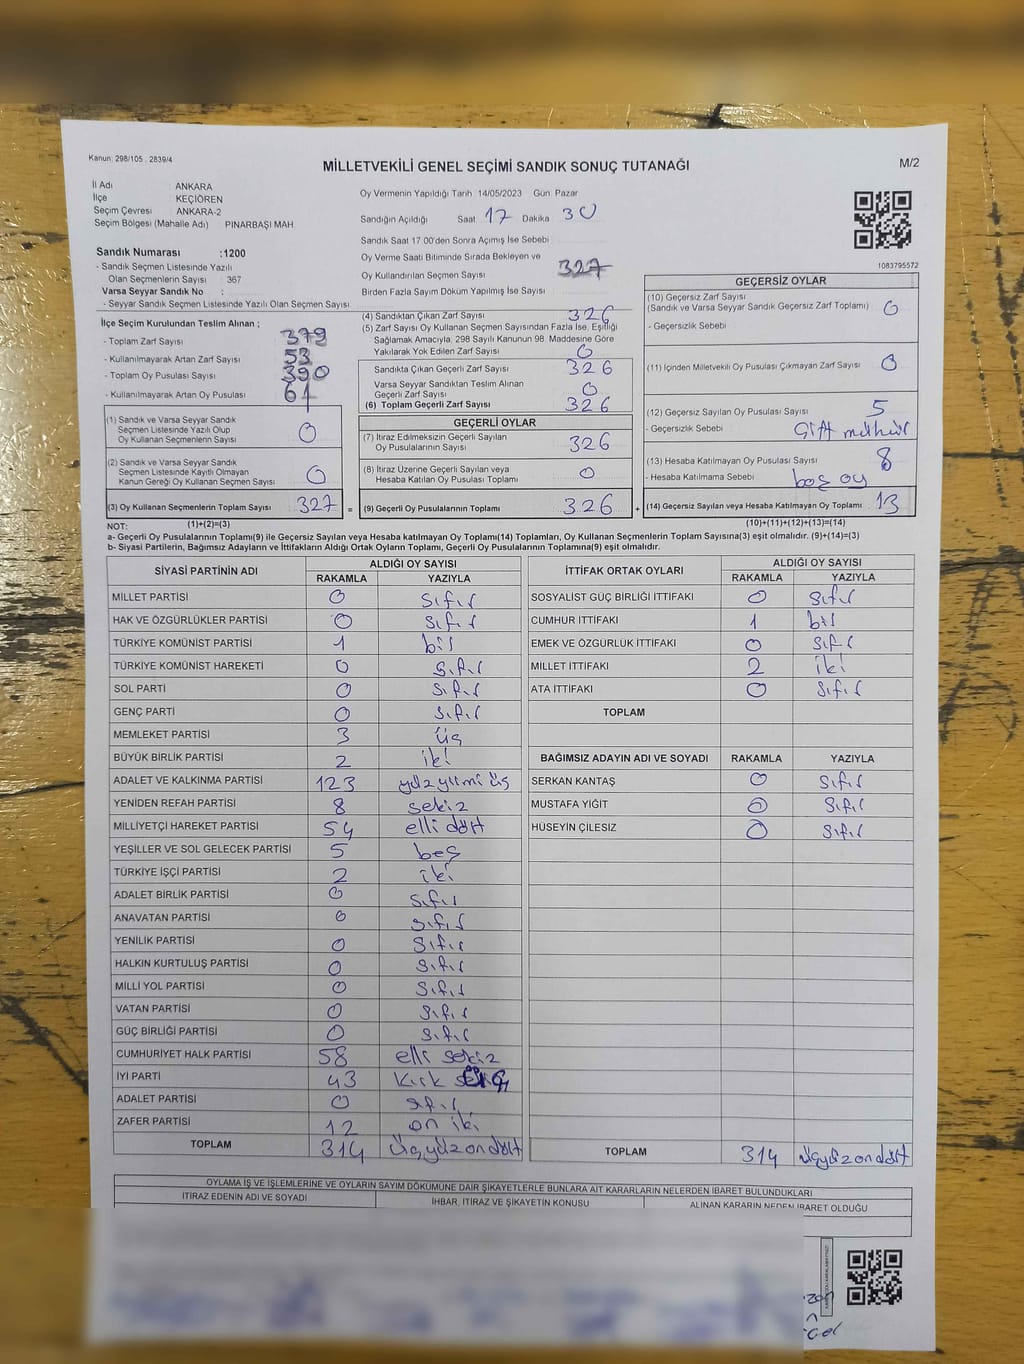 Kanun: 298/105 , 2839/4
MİLLETVEKİLİ GENEL SEÇİMİ SANDIK SONUÇ TUTANAĞI
M/2
İl Adı : ANKARA
İlçe : KEÇİÖREN
Seçim Çevresi : ANKARA-2
Seçim Bölgesi (Mahalle Adı) : PINARBAŞI MAH
Oy Vermenin Yapıldığı Tarih 14/05/2023 Gün Pazar
Sandığın Açıldığı Saat 17 Dakika 30
Sandık Saat 17 00'den Sonra Açımış İse Sebebi
Oy Verme Saati Bitiminde Sırada Bekleyen ve
Oy Kullandırılan Seçmen Sayısı 327
Birden Fazla Sayım Döküm Yapılmış İse Sayısı
Sandık Numarası :1200
- Sandık Seçmen Listesinde Yazılı
Olan Seçmenlerin Sayısı : 367
Varsa Seyyar Sandık No :
- Seyyar Sandık Seçmen Listesinde Yazılı Olan Seçmen Sayısı
1083795572
İlçe Seçim Kurulundan Teslim Alınan ;
- Toplam Zarf Sayısı 379
- Kullanılmayarak Artan Zarf Sayısı 53
- Toplam Oy Pusulası Sayısı 390
- Kullanılmayarak Artan Oy Pusulası 61
(1) Sandık ve Varsa Seyyar Sandık
Seçmen Listesinde Yazılı Olup
Oy Kullanan Seçmenlerin Sayısı 0
(2) Sandık ve Varsa Seyyar Sandık
Seçmen Listesinde Kayıtlı Olmayan
Kanun Gereği Oy Kullanan Seçmen Sayısı 0
(3) Oy Kullanan Seçmenlerin Toplam Sayısı 327 =
(4) Sandıktan Çıkan Zarf Sayısı 326
(5) Zarf Sayısı Oy Kullanan Seçmen Sayısından Fazla İse, Eşitliği
Sağlamak Amacıyla, 298 Sayılı Kanunun 98. Maddesine Göre
Yakılarak Yok Edilen Zarf Sayısı 0
Sandıkta Çıkan Geçerli Zarf Sayısı 326
Varsa Seyyar Sandıktan Teslim Alınan
Geçerli Zarf Sayısı 0
(6) Toplam Geçerli Zarf Sayısı 326
GEÇERLİ OYLAR
(7) İtiraz Edilmeksizin Geçerli Sayılan
Oy Pusulalarının Sayısı 326
(8) İtiraz Üzerine Geçerli Sayılan veya
Hesaba Katılan Oy Pusulası Toplamı 0
(9) Geçerli Oy Pusulalarının Toplamı 326 +
GEÇERSİZ OYLAR
(10) Geçersiz Zarf Sayısı
(Sandık ve Varsa Seyyar Sandık Geçersiz Zarf Toplamı) 0
- Geçersizlik Sebebi
(11) İçinden Milletvekili Oy Pusulası Çıkmayan Zarf Sayısı 0
(12) Geçersiz Sayılan Oy Pusulası Sayısı 5
- Geçersizlik Sebebi Çift mühür
(13) Hesaba Katılmayan Oy Pusulası Sayısı 8
- Hesaba Katılmama Sebebi boş oy
(14) Geçersiz Sayılan veya Hesaba Katılmayan Oy Toplamı 13
NOT: (1)+(2)=(3) (10)+(11)+(12)+(13)=(14)
a- Geçerli Oy Pusulalarının Toplamı(9) ile Geçersiz Sayılan veya Hesaba katılmayan Oy Toplamı(14) Toplamları, Oy Kullanan Seçmenlerin Toplam Sayısına(3) eşit olmalıdır. (9)+(14)=(3)
b- Siyasi Partilerin, Bağımsız Adayların ve İttifakların Aldığı Ortak Oyların Toplamı, Geçerli Oy Pusulalarının Toplamına(9) eşit olmalıdır.
SİYASİ PARTİNİN ADI ALDIĞI OY SAYISI
RAKAMLA YAZIYLA
MİLLET PARTİSİ 0 sıfır
HAK VE ÖZGÜRLÜKLER PARTİSİ 0 sıfır
TÜRKİYE KOMÜNİST PARTİSİ 1 bir
TÜRKİYE KOMÜNİST HAREKETİ 0 sıfır
SOL PARTİ 0 sıfır
GENÇ PARTİ 0 sıfır
MEMLEKET PARTİSİ 3 üç
BÜYÜK BİRLİK PARTİSİ 2 iki
ADALET VE KALKINMA PARTİSİ 123 yüz yirmi üç
YENİDEN REFAH PARTİSİ 8 sekiz
MİLLİYETÇİ HAREKET PARTİSİ 54 elli dört
YEŞİLLER VE SOL GELECEK PARTİSİ 5 beş
TÜRKİYE İŞÇİ PARTİSİ 2 iki
ADALET BİRLİK PARTİSİ 0 sıfır
ANAVATAN PARTİSİ 0 sıfır
YENİLİK PARTİSİ 0 sıfır
HALKIN KURTULUŞ PARTİSİ 0 sıfır
MİLLİ YOL PARTİSİ 0 sıfır
VATAN PARTİSİ 0 sıfır
GÜÇ BİRLİĞİ PARTİSİ 0 sıfır
CUMHURİYET HALK PARTİSİ 58 elli sekiz
İYİ PARTİ 43 kırk üç
ADALET PARTİSİ 0 sıfır
ZAFER PARTİSİ 12 on iki
TOPLAM 314 üçyüzondört
İTTİFAK ORTAK OYLARI ALDIĞI OY SAYISI
RAKAMLA YAZIYLA
SOSYALİST GÜÇ BİRLİĞİ İTTİFAKI 0 sıfır
CUMHUR İTTİFAKI 1 bir
EMEK VE ÖZGÜRLÜK İTTİFAKI 0 sıfır
MİLLET İTTİFAKI 2 iki
ATA İTTİFAKI 0 sıfır
TOPLAM
BAĞIMSIZ ADAYIN ADI VE SOYADI RAKAMLA YAZIYLA
SERKAN KANTAŞ 0 sıfır
MUSTAFA YİĞİT 0 sıfır
HÜSEYİN ÇİLESİZ 0 sıfır
TOPLAM 314 üçyüzondört
OYLAMA İŞ VE İŞLEMLERİNE VE OYLARIN SAYIM DÖKÜMÜNE DAİR ŞİKAYETLERLE BUNLARA AİT KARARLARIN NELERDEN İBARET BULUNDUKLARI
İTİRAZ EDENİN ADI VE SOYADI İHBAR, İTİRAZ VE ŞİKAYETİN KONUSU ALINAN KARARIN NEDEN İBARET OLDUĞU